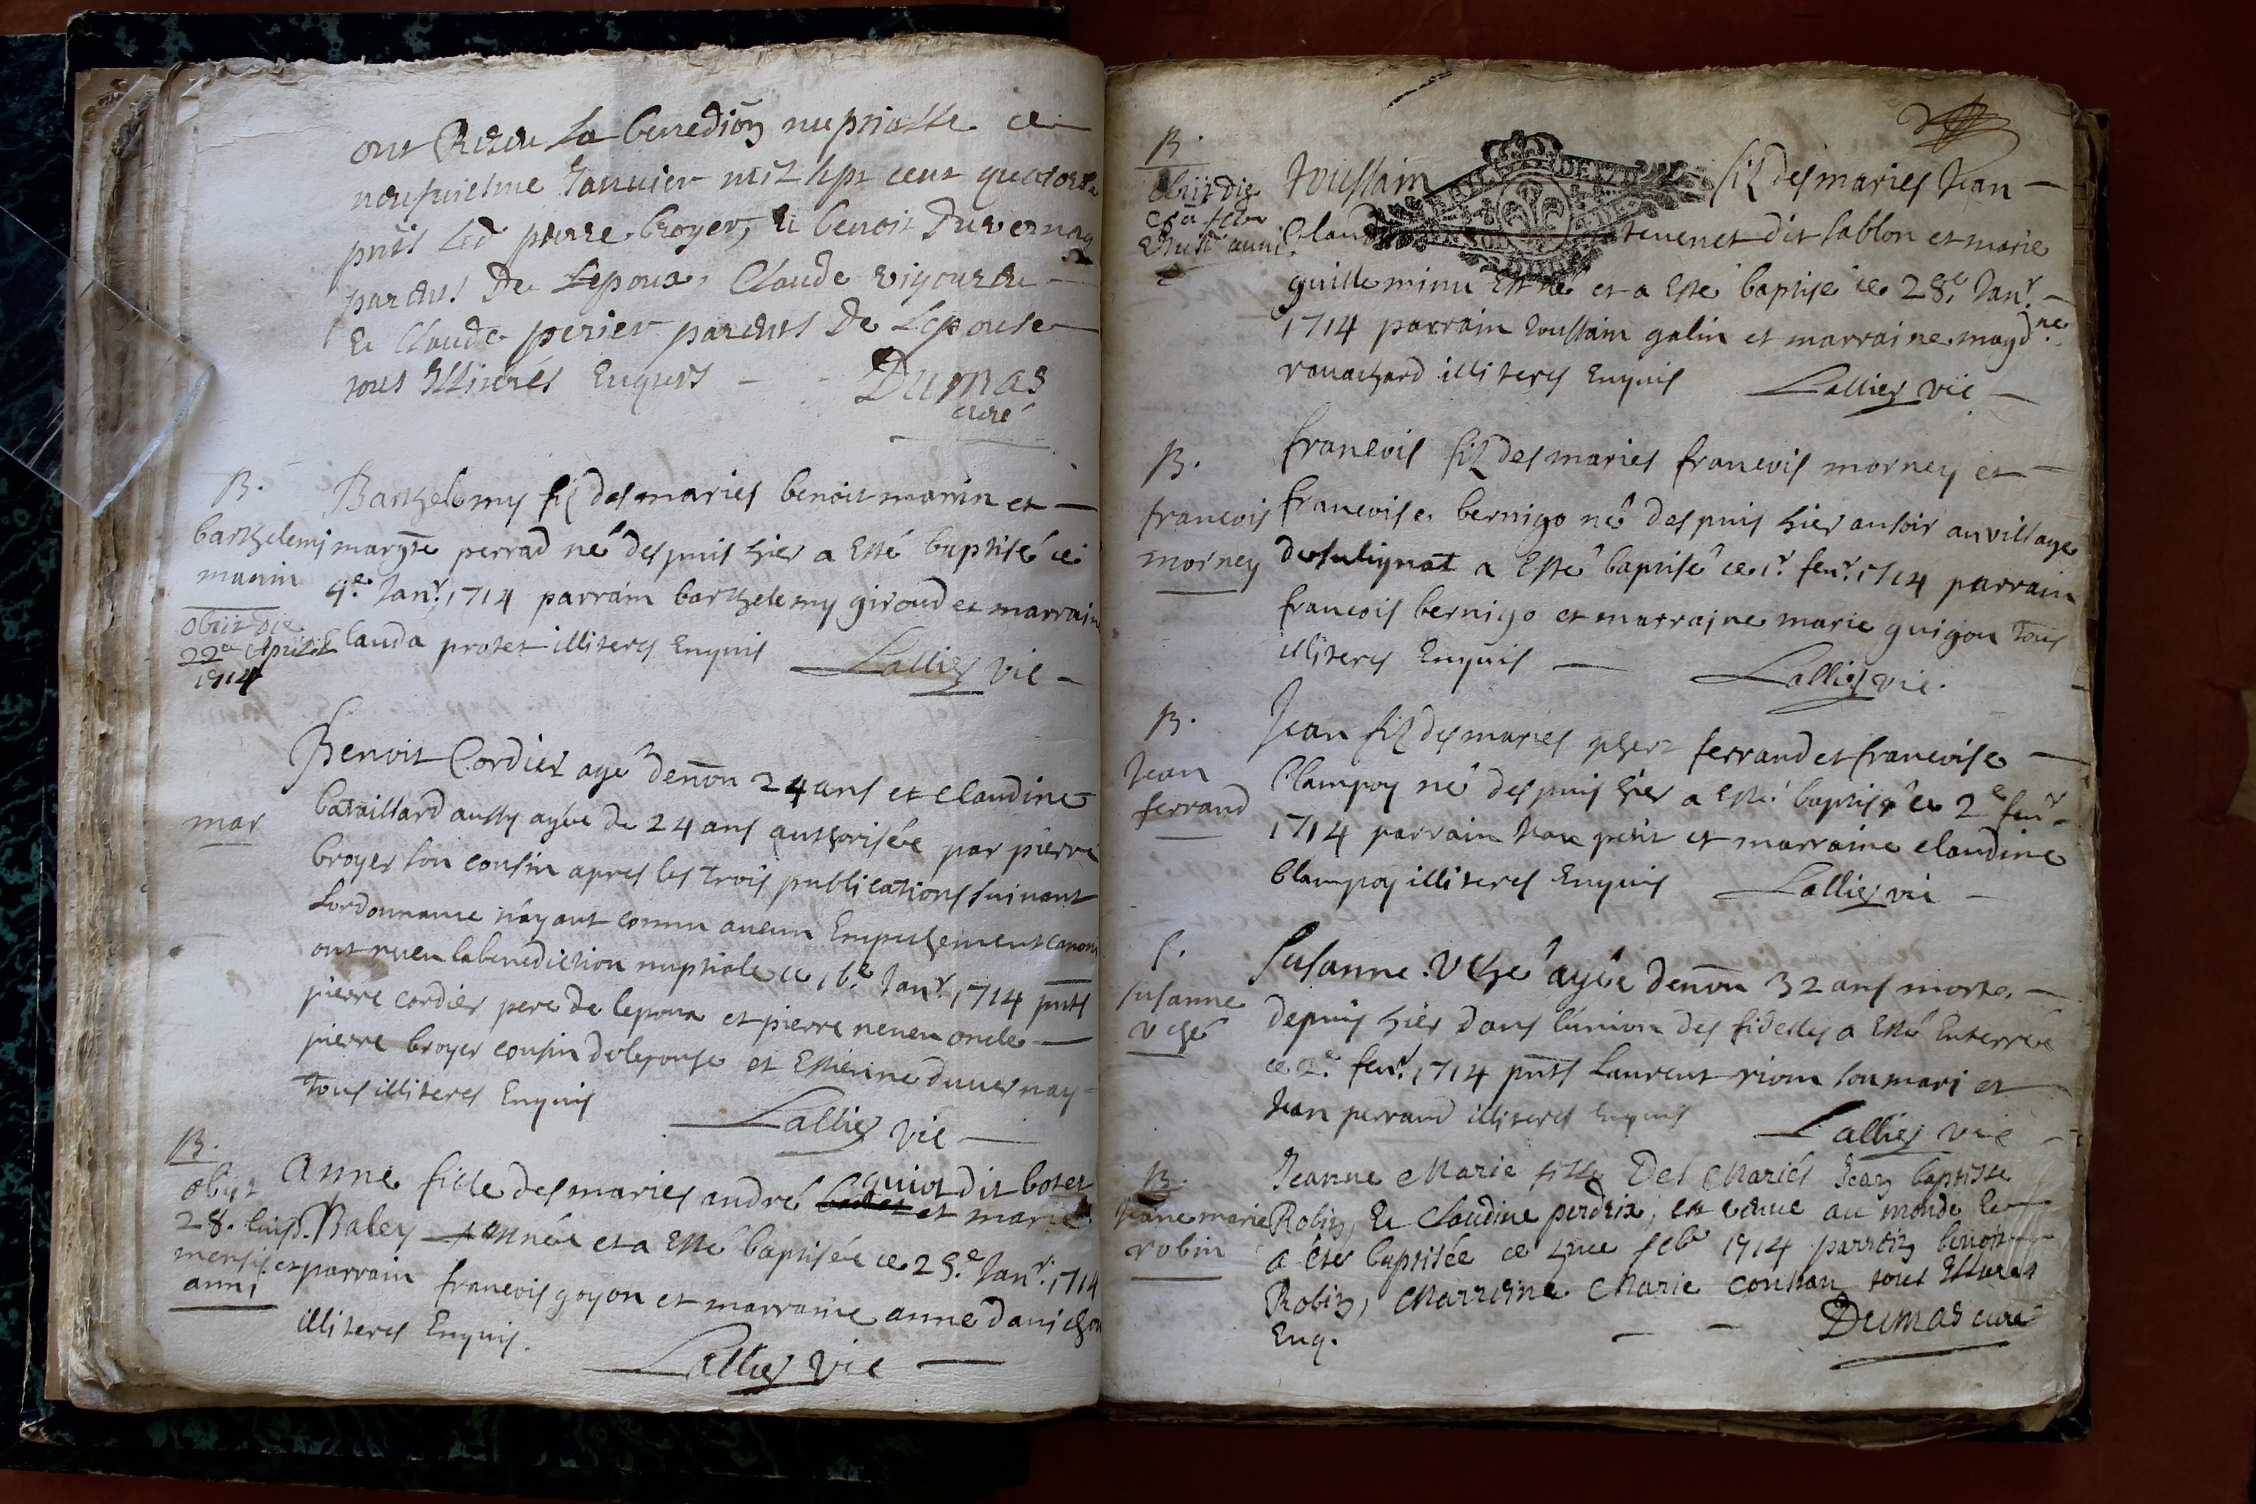 ont Receu La benediõn nuptialle ce
neufuiesme Januier mil sept cent quatorze
pnts Led pierre broyer, Et benoit Duvernay
parens De Lepoux, Claude
Et Claude perier parents De Lepouse
tous Illiterés Enquis
Dumas
curé
B.
barthelemi
manin
obiit die
22a Aprilis
1714
Barthelemy fil des maries benoit manin et
margte perrad né despuis hier a Esté baptisé ce
9.e Janr. 1714 parrain barthelemy giroud et marraine
Clauda protet illiteres Enquis
Lallier vic
mar
Benoit Cordier agé denōn 24 ans et claudine
bataillard aussy agée de 24 ans authorisée par pierre
broyer son cousin apres les trois publications suivant
Lordonnance n'ayant connu aucun Empechement canon
ont receu la benediction nuptiale ce 16.e Janr. 1714 pnts
pierre cordier pere de lepoux et pierre neveu oncle
pierre broyer cousin de lepouse et Estienne duvernay
Tous illiteres Enquis
Lallier vic
B.
obiit
28. huius
mensis et
anni
Anne fille des maries andré guiot dit botet
et marie
Baley née et a Esté baptisée ce 25.e Janr. 1714
parrain francois goyon et marraine anne danichon
illiteres Enquis.
Lallier vic
B.
obiit die
anni
Toussain fil des maries Jean
Claude tevenet dit sablon et marie
guille minu Est né et a Esté baptisé ce 28.e Janr.
1714 parrain toussain galin et marraine magdne.
illiteres Enquis
Lallier vic
B.
francois
morney
francois fil des maries francois morney et
francoise bernigo né despuis hier au soir au village
de sulignat a Esté baptisé ce 1r. feur. 1714 parrain
francois bernigo et marraine marie guigon Tous
illiteres Enquis
Lallier vic.
B.
Jean
ferrand
Jean fil des maries phert ferrand et francoise
Clampoy né despuis hier a Esté baptisé ce 2e feur
1714 parrain Jean petit et marraine claudine
Clampoy illiteres Enquis
Lallier vic
S.
susanne
Susanne agée denōn 32 ans morte
depuis hier dans lunion des fideles a Esté Enterrée
ce 2.e feur. 1714 pnts Laurent riom son mari et
Jean perrand illiteres Enquis
Lallier vic
B.
Jeane marie
robin
Jeanne Marie fille Des Mariés Jean baptiste
Robin, Et Claudine perdrix, est venue au monde et
a été baptisée ce feb 1714 parrein benoit
Robin, Marreine Marie tous Illiteres
Enq.
Dumas curé